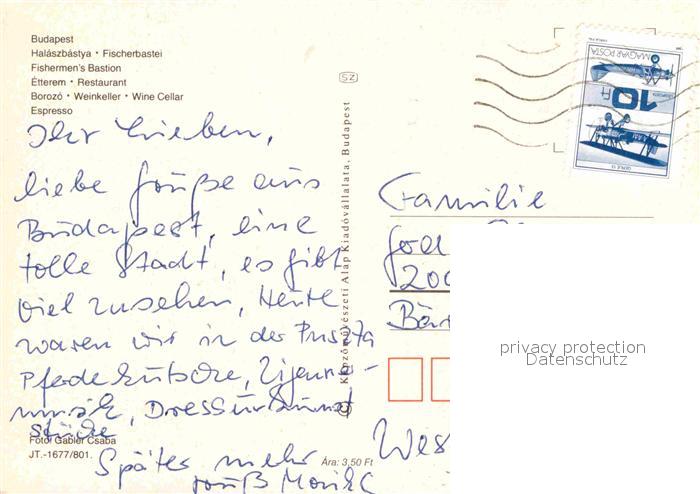 Budapest
Halászbástya • Fischerbastei
Fishermen's Bastion
Étterem • Restaurant
Borozó • Weinkeller • Wine Cellar
Espresso
Ihr Lieben,
liebe Grüße aus
Budapest, eine
tolle Stadt, es gibt
viel zusehen, Heute
waren wir in der Puszta
Pferdekutsche, Zigeuner-
musik, Dressurkunst
stücke
Später mehr
Gruß Monika
Foto: Gabler Csaba
JT.-1677/801.
Ára: 3,50 Ft
SZ
Képzőművészeti Alap Kiadóvállalata, Budapest
MAGYAR POSTA
10 Ft
Familie
200
Wes
privacy protection
Datenschutz